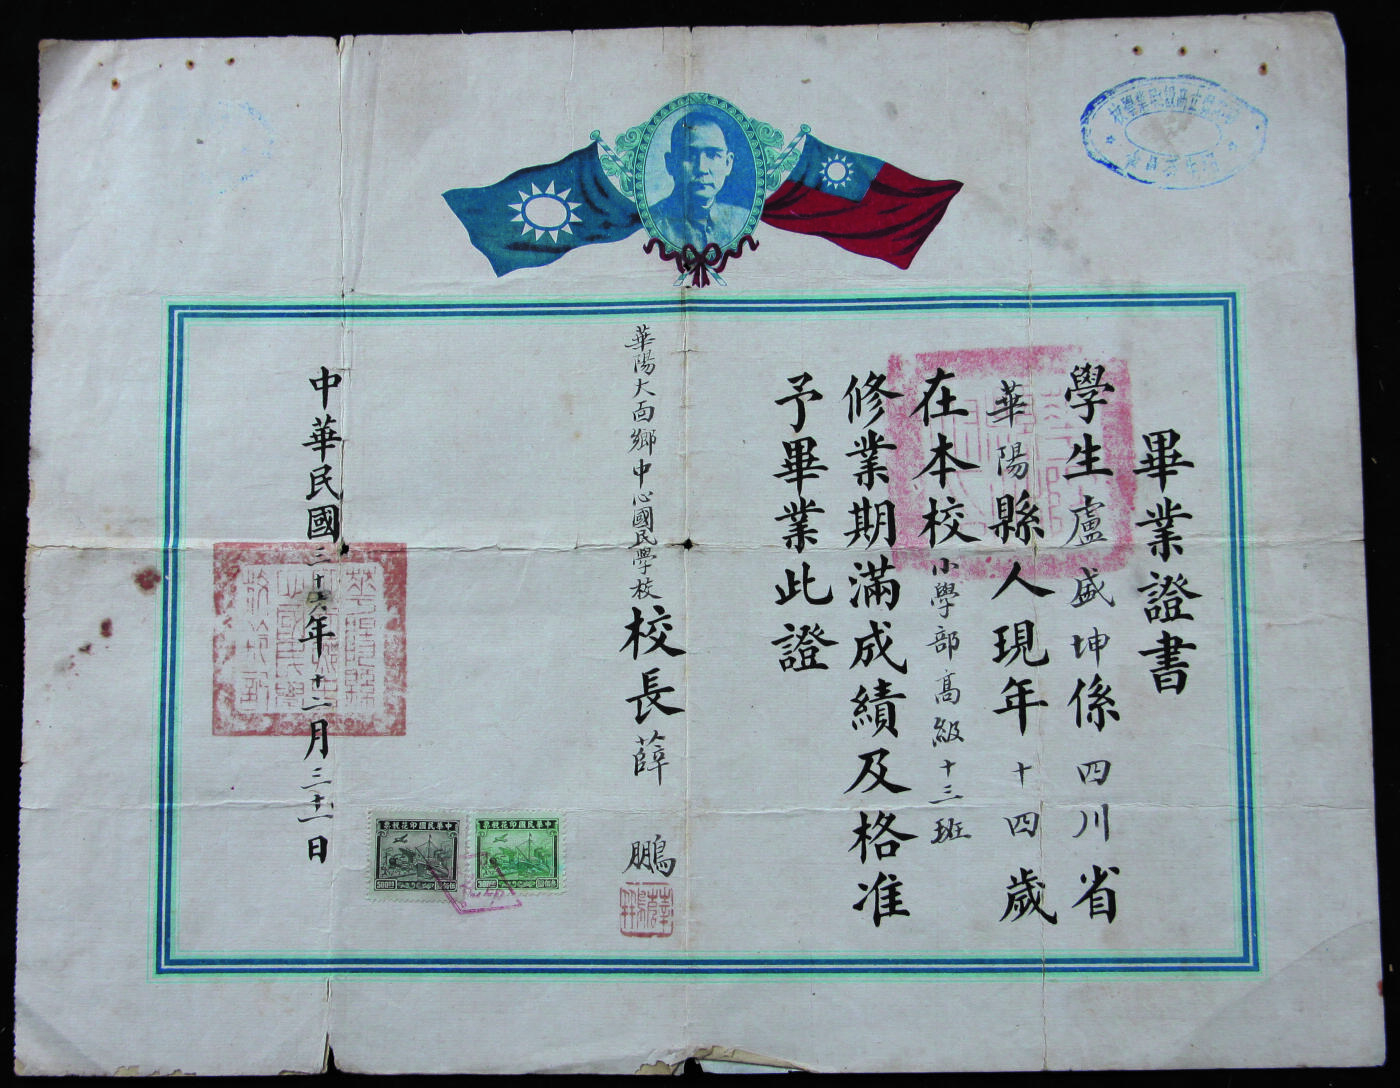 畢業證書
學生盧盛坤係四川省
華陽縣人現年十四歲
在本校小學部高級十三班
修業期滿成績及格准
予畢業此證
華陽大面鄉中心國民學校
校長薛鵬
薛鵬
中華民國三十六年十二月三十一日
中華民國印花稅票
300
中華民國印花稅票
500